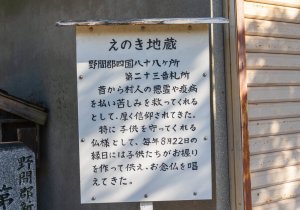 えのき地蔵
野間郡四国八十八ヶ所
第二十三番札所
昔から村人の悪霊や疫病
を払い苦しみを救ってくれる
として、厚く信仰されてきた。
特に子供を守ってくれる
仏様として、毎年8月22日の
縁日には子供たちがお握り
を作って供え、お念仏を唱
えてきた。
野間郡
第